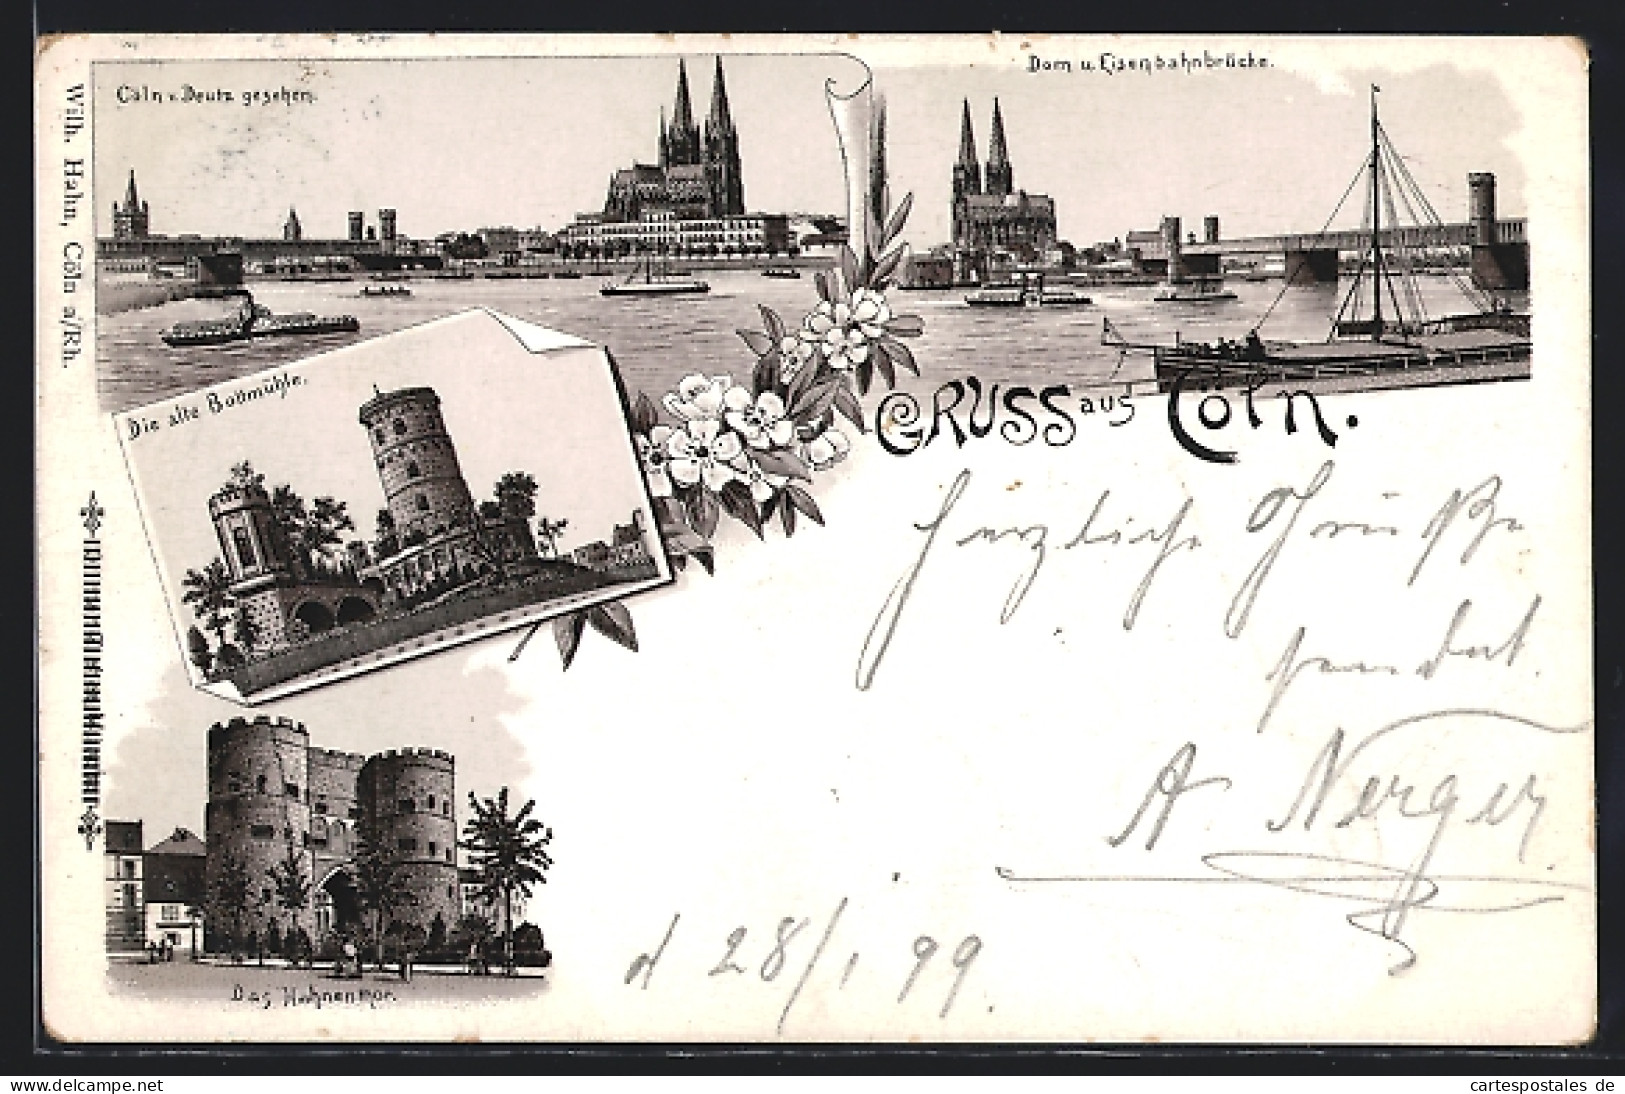 Cöln v. Deutz gesehen.
Dom u. Eisenbahnbrücke.
Wilh. Hahn, Cöln a/Rh.
Die alte Bottmühle.
GRUSS aus Cöln.
Herzliche Grüße
sendet
A Nerger.
d 28/1 99.
Das Hahnenthor.
www.cartespostales.de
cartespostales de